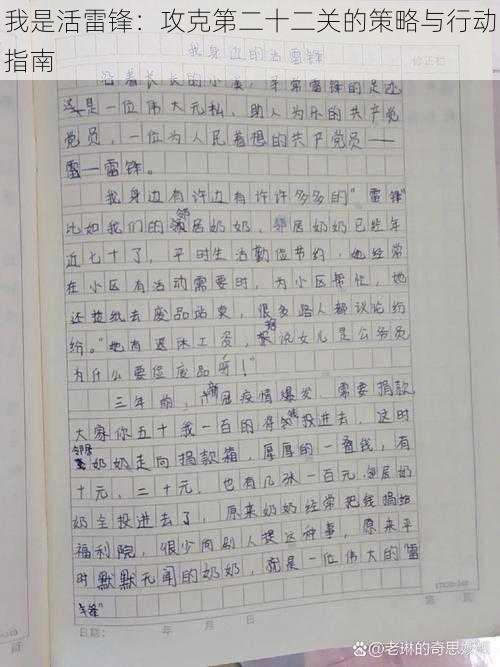 我是活雷锋：攻克第二十二关的策略与行动
指南
我身边的活雷锋
沿着长长的小溪，寻常雷锋的足迹
是一位伟大无私、助人为乐的共产党
党员，一位为人民着想的共产党员——
雷—雷锋。
我身边有许边有许许多多的"雷锋"
比如我们的邻居奶奶，邻居奶奶已经年
近七十了，平时生活勤俭节约，她经常
在小区有活动需要时，为小区帮忙，她
还捡纸去废品站卖，很多路人都议论纷
纷。"她有退休工资，据说女儿是公务员
为什么要捡废品呀！"
三年前，新冠疫情爆发，需要捐款
大家你五十我一百的将钱投进去，这时
邻居奶奶走向捐款箱，厚厚的一叠钱，有
十元、二十元，也有几张一百元，邻居奶
奶全投进去了，原来奶奶经常把钱捐给
福利院，很少向别人提这种事，原来平
时默默无闻的奶奶，就是一位伟大的"雷
锋"
日期： 年 月 日
第 页
@老琳的奇思妙想